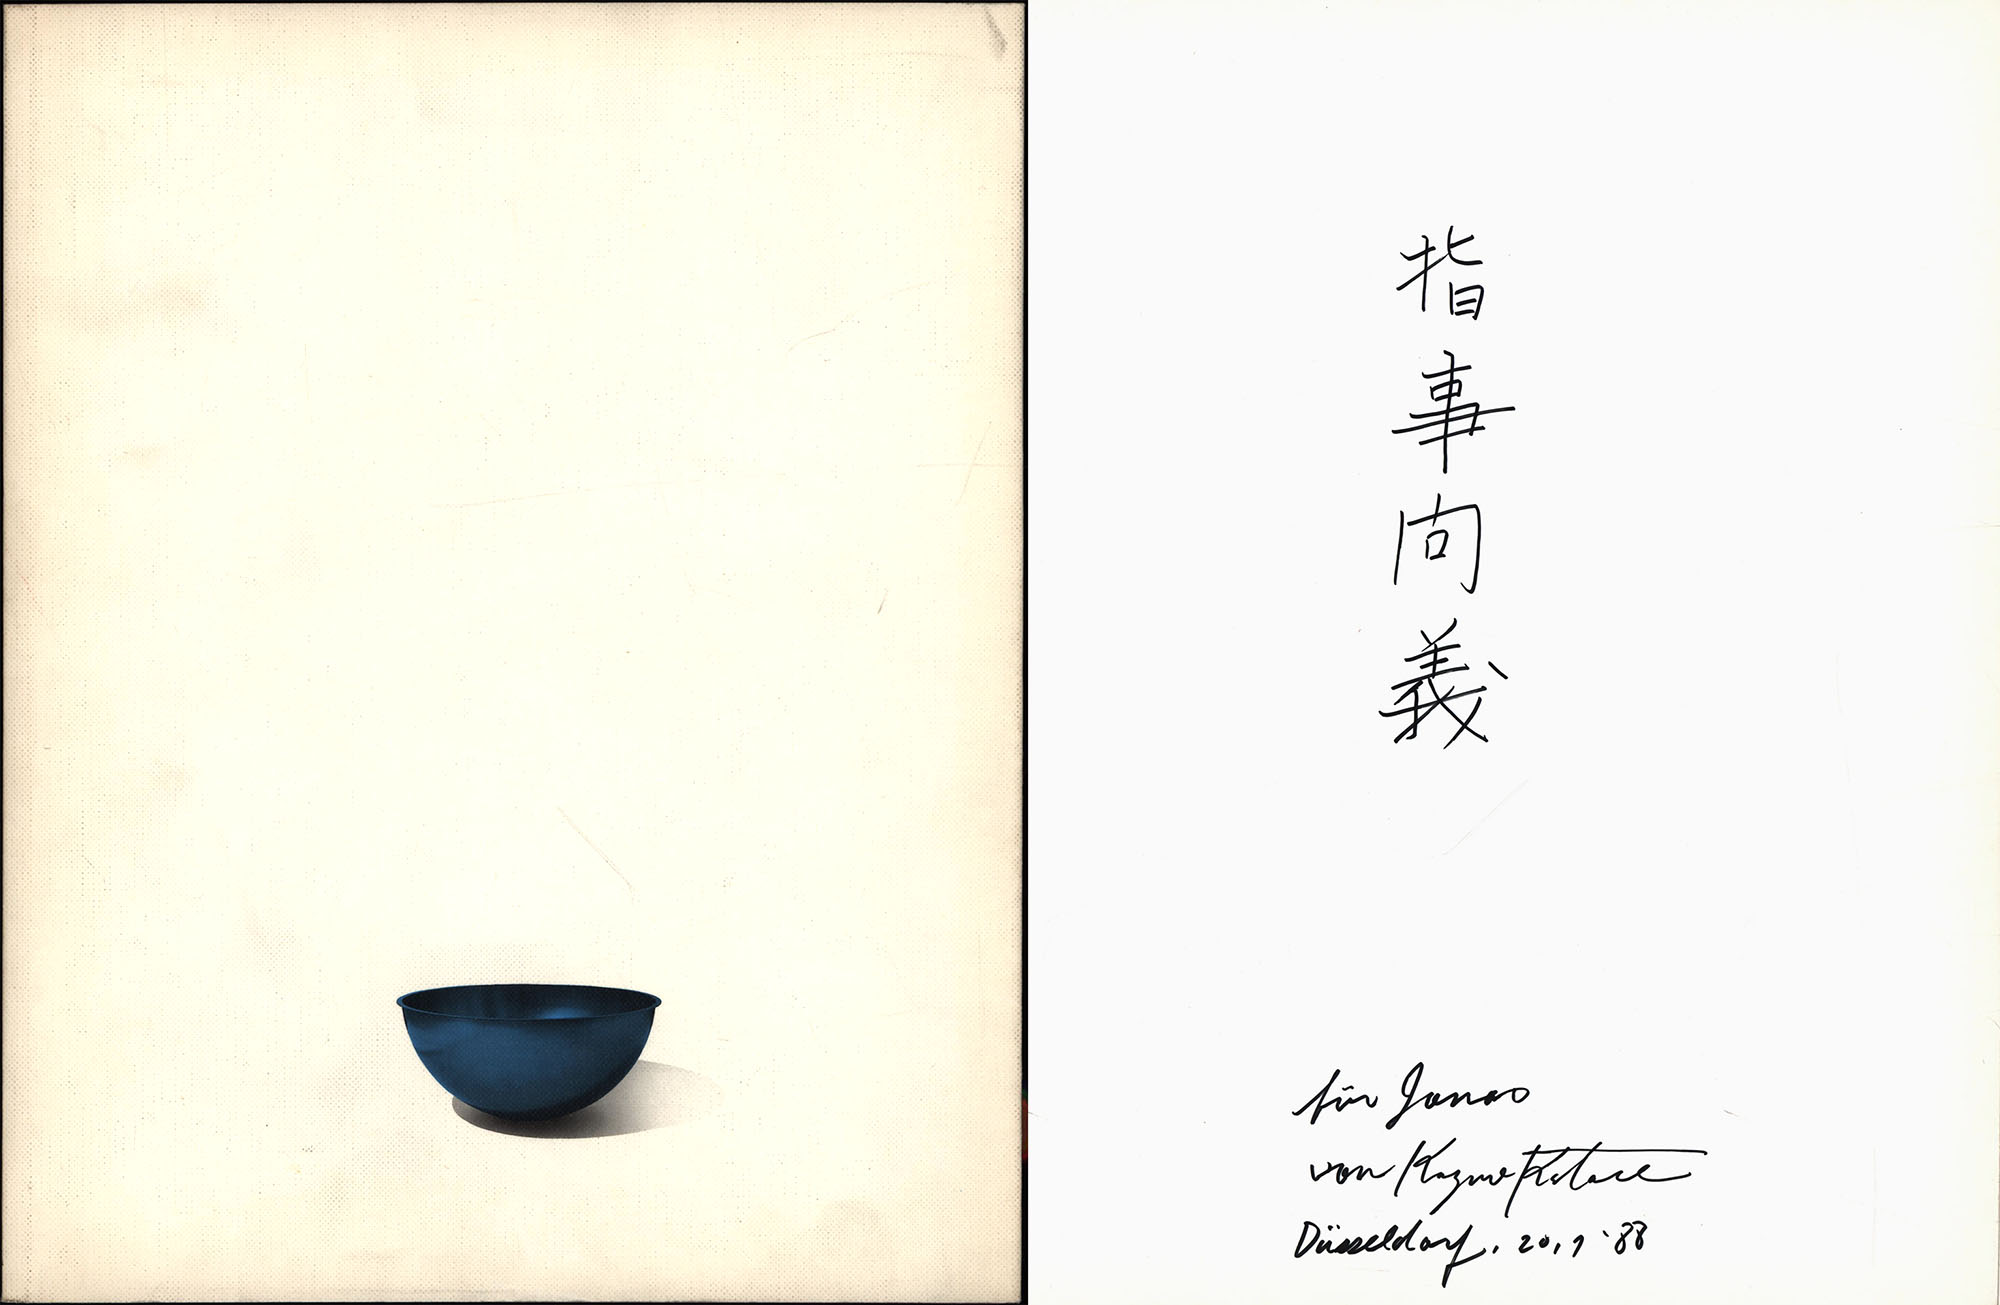 指事向義
für Jonas
von Kazuo Katase
Düsseldorf, 20,9 '88